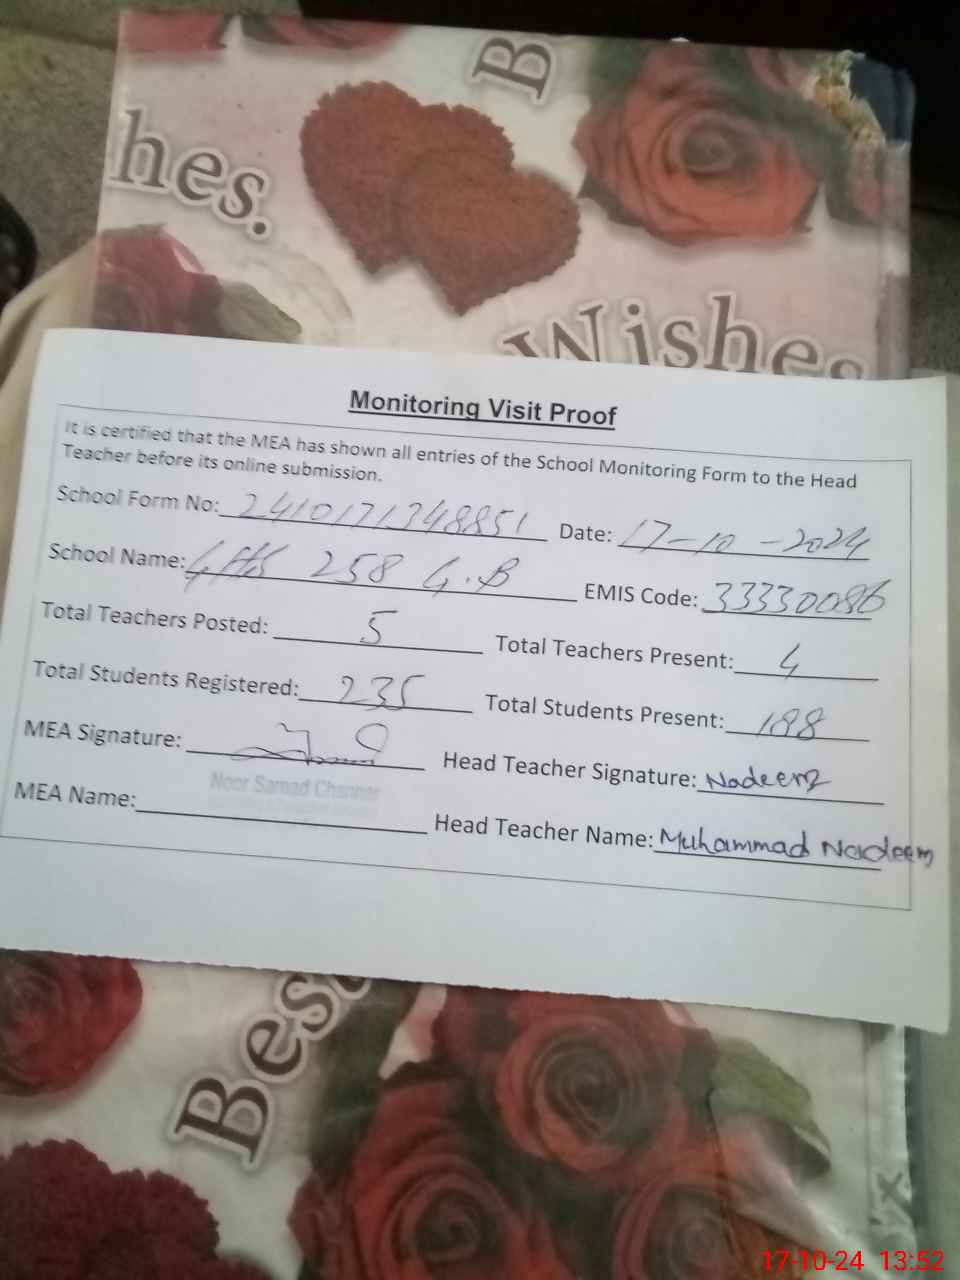 B
hes.
Wishes
Monitoring Visit Proof
It is certified that the MEA has shown all entries of the School Monitoring Form to the Head
Teacher before its online submission.
School Form No: 2410171348851 Date: 17-10-2024
School Name: GHS 258 G.B EMIS Code: 33330086
Total Teachers Posted: 5 Total Teachers Present: 4
Total Students Registered: 235 Total Students Present: 188
MEA Signature: Head Teacher Signature: Nadeem
Noor Samad Channer
MEA Name: Head Teacher Name: Muhammad Nadeem
Best
17-10-24 13:52